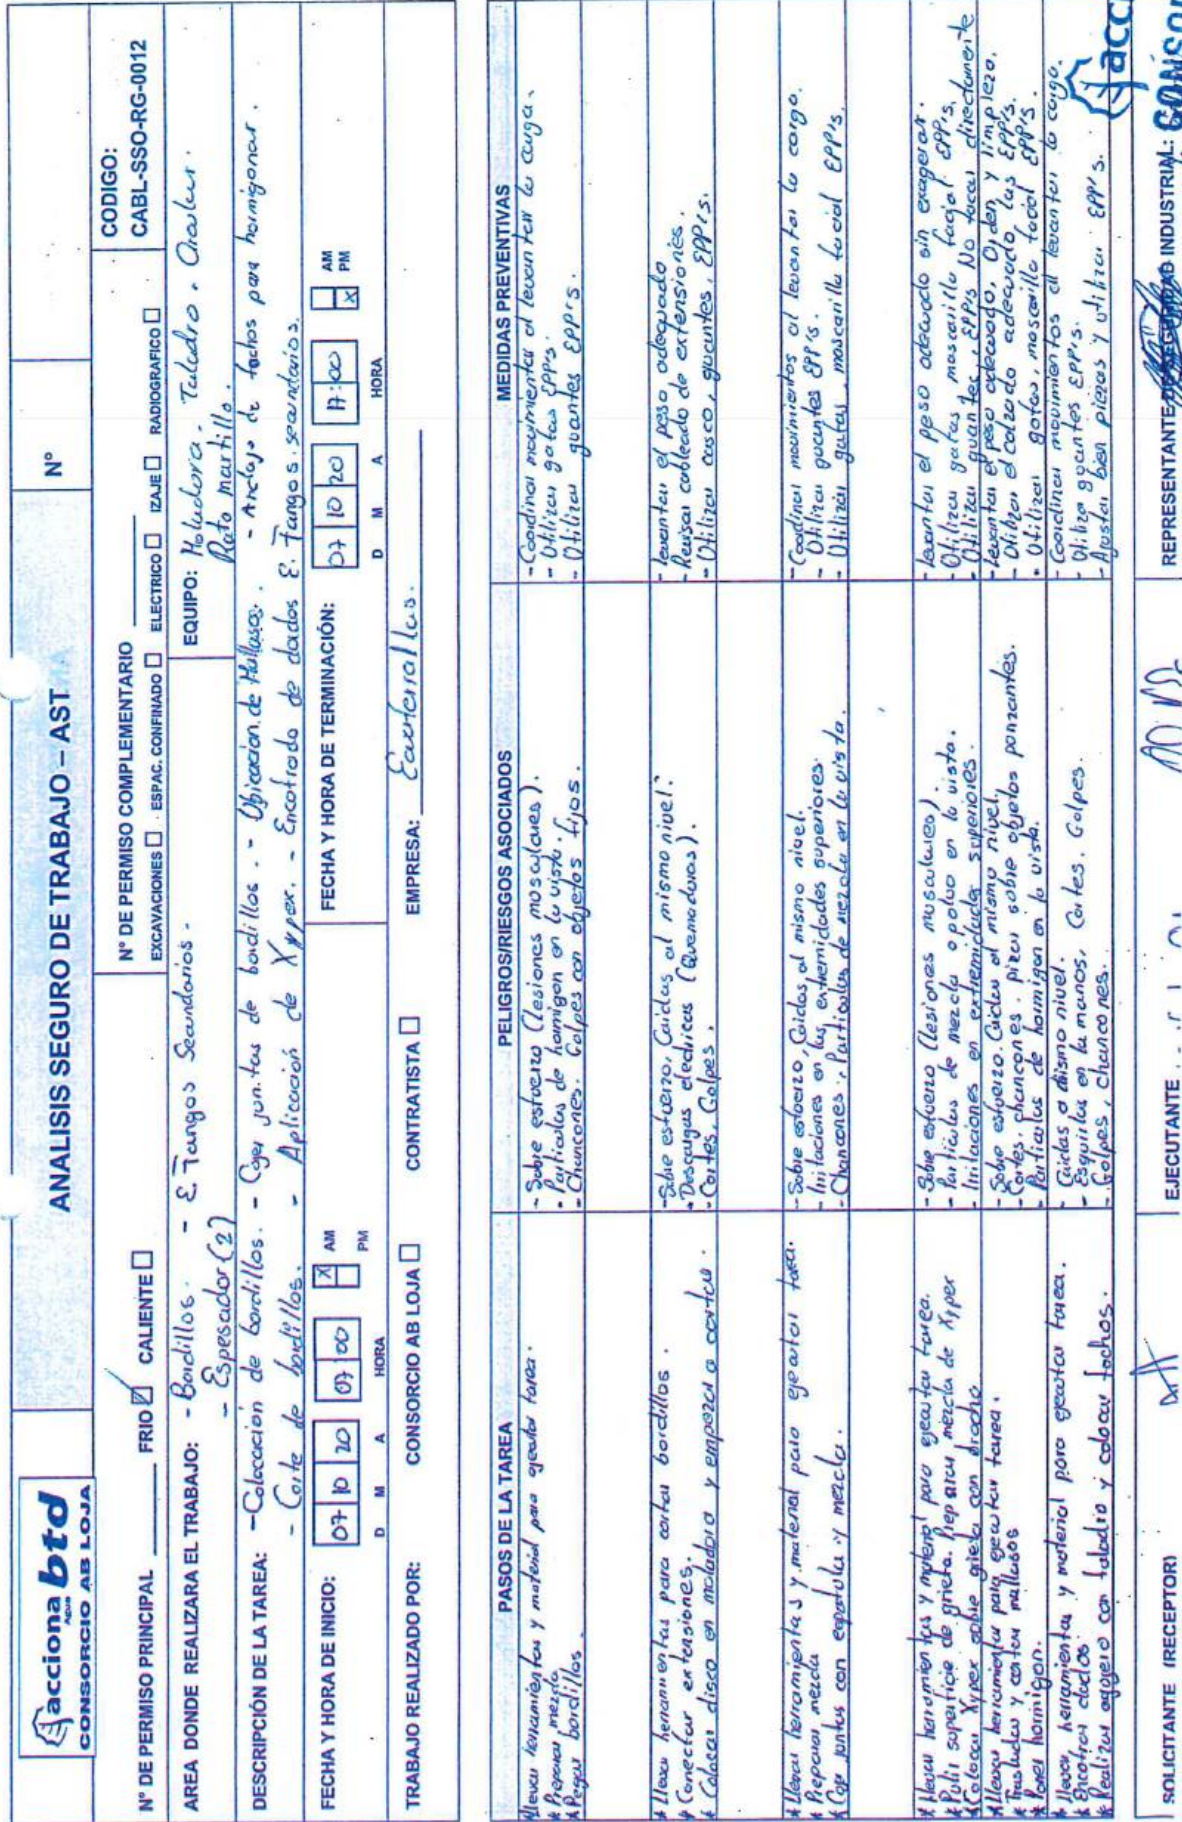 acciona btd
Agua
CONSORCIO AB LOJA
ANALISIS SEGURO DE TRABAJO – AST
N°
N° DE PERMISO PRINCIPAL
FRIO
CALIENTE
N° DE PERMISO COMPLEMENTARIO
EXCAVACIONES ESPAC. CONFINADO ELECTRICO IZAJE RADIOGRAFICO
CODIGO:
CABL-SSO-RG-0012
AREA DONDE REALIZARA EL TRABAJO: - Bordillos. - E. Fangos Secundarios.
- Espesador (2)
EQUIPO: Moludora. Taladro. Chaler.
Roto martillo.
DESCRIPCIÓN DE LA TAREA: - Colocacion de bordillos. - Coger juntas de bordillos. - Ubicacion de Mallasos. - Anclaje de tachos para hormigonar.
- Corte de bordillos. - Aplicación de Xypex. - Encofrado de dados E. Fangos secundarios.
FECHA Y HORA DE INICIO: 07 10 20 07:00 X AM
PM
D M A HORA
FECHA Y HORA DE TERMINACIÓN: 07 10 20 17:00 AM
X PM
D M A HORA
TRABAJO REALIZADO POR: CONSORCIO AB LOJA CONTRATISTA EMPRESA:
PASOS DE LA TAREA
PELIGROS/RIESGOS ASOCIADOS
MEDIDAS PREVENTIVAS
* Llevar herramientas y material para ejecutar tarea.
* Preparar mezcla
* Pegar bordillos
- Sobre esfuerzo (lesiones mosculares).
- Particulas de hormigon en la vista.
- Chancones. Golpes con objetos fijos.
- Coordinar movimientos al levantar la carga.
- Utilizar gafas EPP's.
- Utilizar guantes EPP's.
* Llevar herramientas para cortar bordillos.
* Conectar extensiones.
* Colocar disco en moladora y empezar a cortar.
- Sobre esfuerzo, Caidas al mismo nivel.
- Descargas electricas (Quemaduras).
- Cortes, Golpes.
- levantar el peso adequado
- Revisar cableado de extensiones.
- Utilizar casco, guantes, EPP's.
* Llevar herramientas y material para ejecutar tarea.
* Preparar mezcla
* Coger juntas con espatula y mezcla.
- Sobre esfuerzo, Caidas al mismo nivel.
- Irritaciones en las extremidades superiores.
- Chancones. Particulas de mezcla en la vista.
- Coordinar movimientos al levantar la carga.
- Utilizar guantes EPP's.
- Utilizar gafas, mascarilla facial EPP's.
* Llevar herramientas y material para ejecutar tarea.
* Pulir superficie de grieta. Preparar mezcla de Xypex
* Colocar Xypex sobre grieta con brocha
- Sobre esfuerzo (lesiones musculares).
- Particulas de mezcla o polvo en la vista.
- Irritaciones en extremidades superiores.
- levantar el peso adecuado sin exagerar.
- Utilizar gafas mascarilla facial EPP's.
- Utilizar guantes, EPP's No tocar directamente
* Llevar herramientas para ejecutar tarea.
* Trasladar y cortar mallasos
* Poner hormigon.
- Sobre esfuerzo. Caidas al mismo nivel.
- Cortes, chancones. pizar sobre objetos ponzantes.
- Particulas de hormigon en la vista.
- Levantar el peso adecuado, Orden y limpieza.
- Utilizar el calzado adecuado las EPP's.
- Utilizar gafas, mascarilla facial EPP's
* Llevar herramientas y material para ejecutar tarea.
* Encofrar dados
* Realizar agujero con taladro y colocar tachos.
- Caidas a mismo nivel.
- Esquirlas en la manos, Cortes. Golpes.
- Golpes, chancones.
- Coordinar movimientos al levantar la carga.
- Utilizar guantes EPP's.
- Ajustar bien piezas y utilizar EPP's.
SOLICITANTE (RECEPTOR)
EJECUTANTE
REPRESENTANTE DE SEGURIDAD INDUSTRIAL: